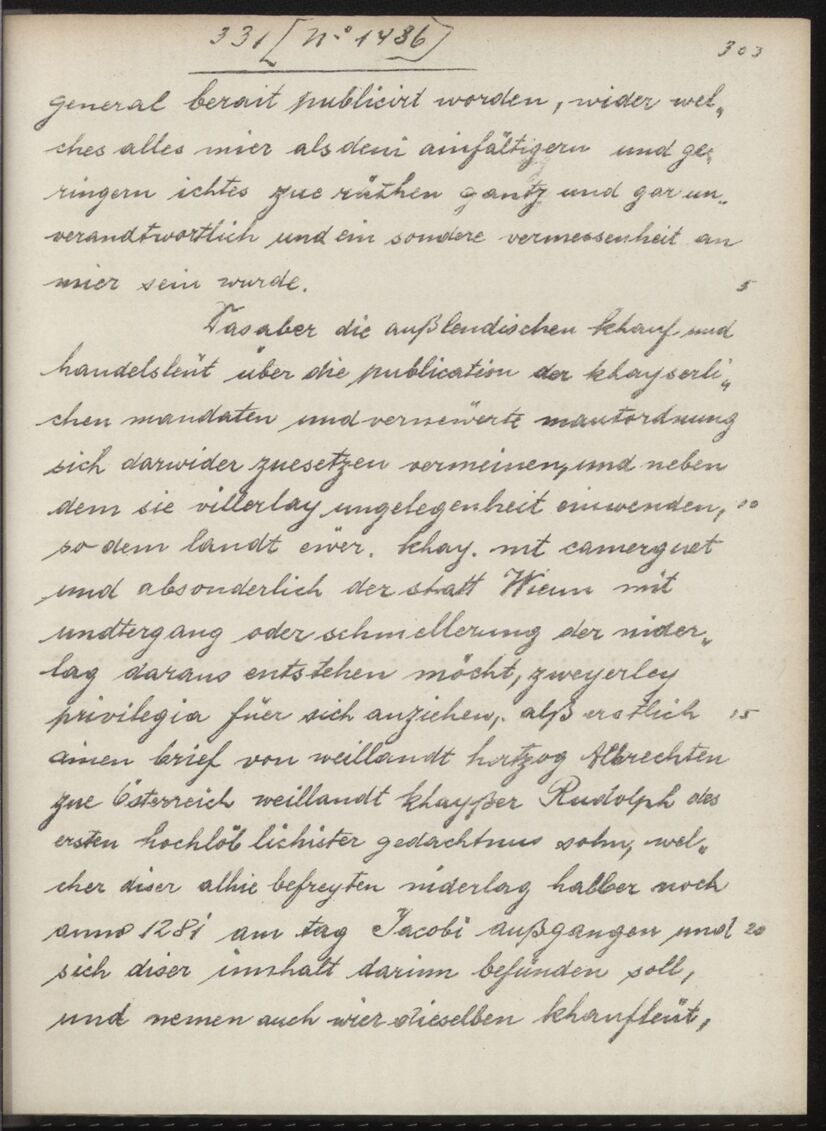 331 [N.o 1486]
303
general berait publicirt worden, wider wel„
ches alles mier als dem ainfältigern und ge„
ringern ichtes zue räthen gantz und gar un„
verandtwortlich und ein sondere vermessenheit an
mier sein wurde.
5
Das aber die außlendischen khauf und
handelsleüt über die publication der khayserli„
chen mandaten und vernewerte mautordnung
sich darwider zuesetzen vermeinen, und neben
dem sie villerlay ungelegenheit einwenden,
10
so dem landt eüer. khay. mt camerguet
und absonderlich der statt Wienn mit
undtergang oder schmellerung der nider„
lag daraus entstehen möcht, zweyerley
privilegia füer sich anziehen, alß erstlich
15
ainen brief von weillandt hertzog Albrechten
zue Österreich weillandt khayßer Rudolph des
ersten hochlöblichister gedachtnus sohn, wel„
cher diser alhie befreyten niderlag halber noch
anno 1281 am tag Jacobi außgangen und
20
sich diser innhalt darinn befünden soll,
und nemen auch wier dieselben khaufleüt,